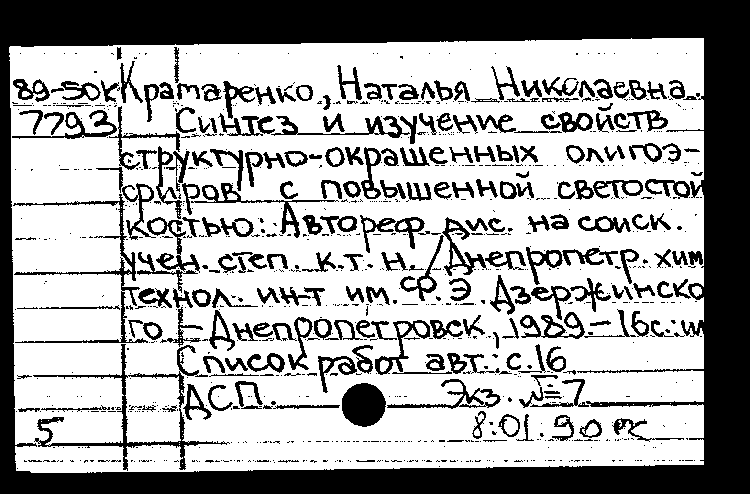 89-50к Кратаренко, Наталья Николаевна.
7793 Синтез и изучение свойств
структурно-окрашенных олигоэ-
фиров с повышенной светостой
костью: Автореф дис. на соиск.
учен. степ. к.т.н. / Днепропетр. хим
технол. ин-т им. Ф.Э. Дзержинско
го - Днепропетровск, 1989. - 16с.: ил
Список работ авт.: с.16
ДСП. Экз. №7
5 8.01.90